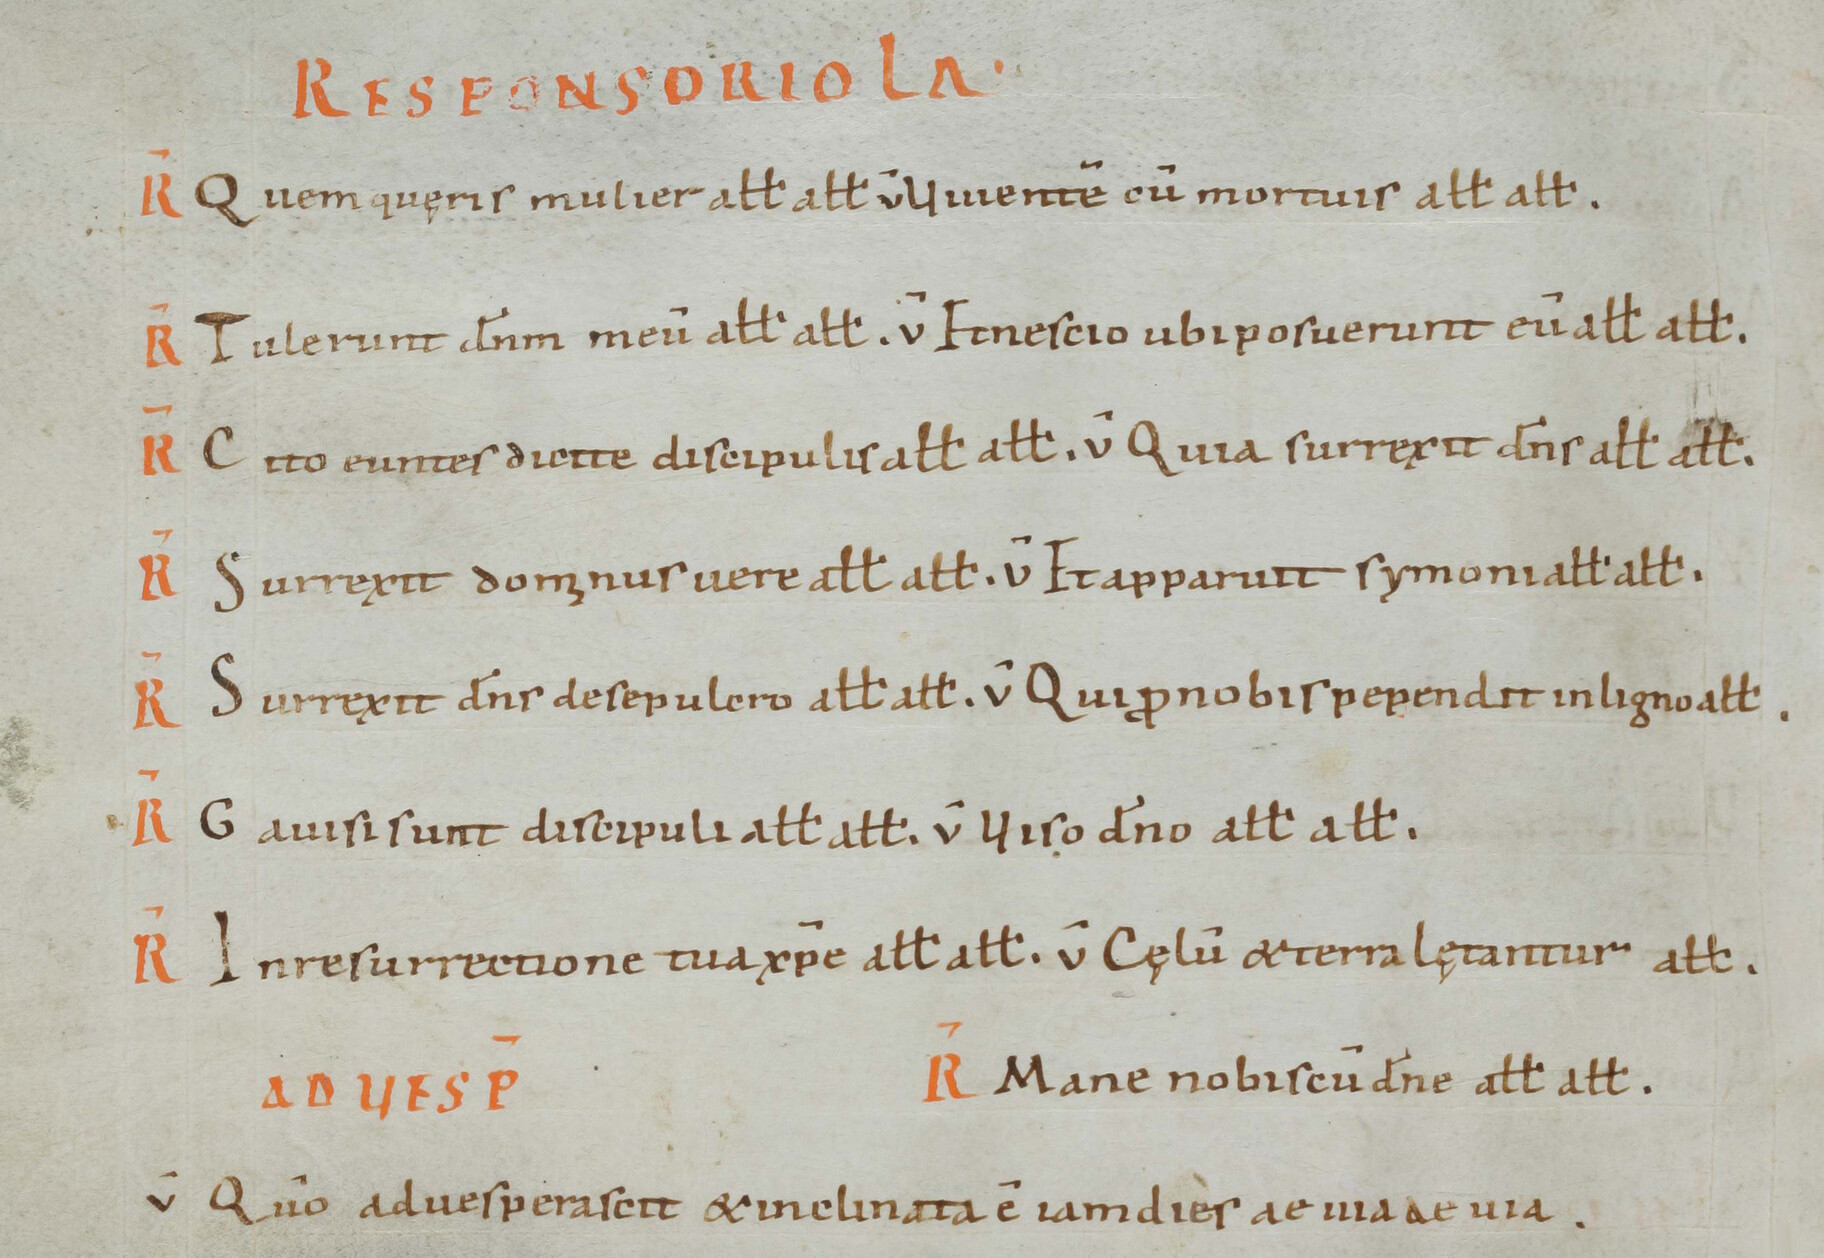 RESPONSORIOLA·
R̄ Quem quęris mulier aƚƚ aƚƚ v̄ Viuentē cū mortuis aƚƚ aƚƚ .
R̄ Tulerunt dn̄m meū aƚƚ aƚƚ . v̄ Et nescio ubi posuerunt eū aƚƚ aƚƚ .
R̄ Cito euntes dicite discipulis aƚƚ aƚƚ . v̄ Quia surrexit dn̄s aƚƚ aƚƚ .
R̄ Surrexit domnus uere aƚƚ aƚƚ . v̄ Et apparuit symoni aƚƚ aƚƚ .
R̄ Surrexit dn̄s de sepulcro aƚƚ aƚƚ . v̄ Qui ꝓ nobis pependit in ligno aƚƚ .
R̄ Gauisi sunt discipuli aƚƚ aƚƚ . v̄ Viso dn̄o aƚƚ aƚƚ .
R̄ In resurrectione tua xp̄e aƚƚ aƚƚ . v̄ Cęlū & terra lętantur aƚƚ .
AD VESP̄ R̄ Mane nobiscū dn̄e aƚƚ aƚƚ .
v̄ Qūo aduesperascit & inclinata ē iam dies aeuia aeuia .